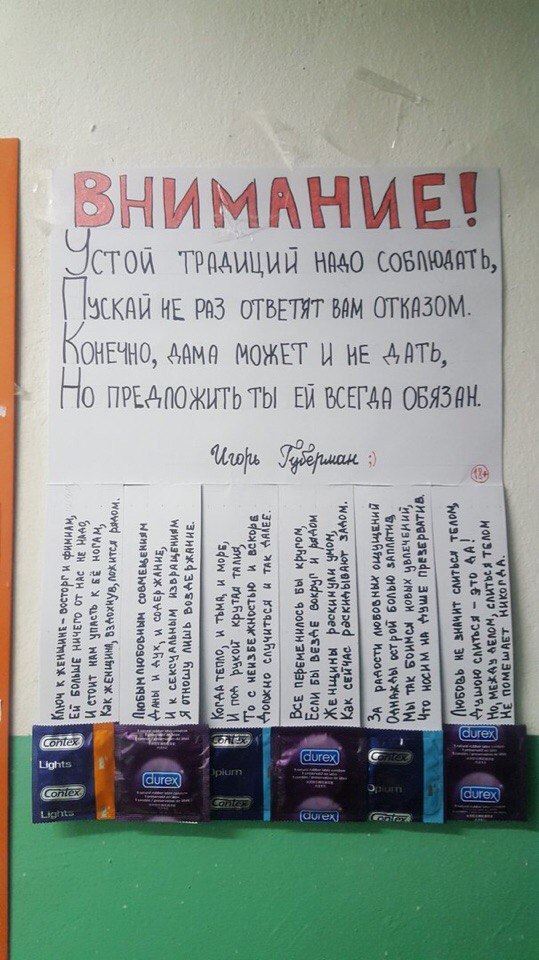 ВНИМАНИЕ!
Устой традиций надо соблюдать,
Пускай не раз ответят вам отказом.
Конечно, дама может и не дать,
Но предложить ты ей всегда обязан.
Игорь Губерман ;)
18+
Ключ к женщине – восторг и фимиам,
Ей больше ничего от нас не надо,
И стоит нам упасть к её ногам,
Как женщина, вздохнув, ложится рядом.
Любым любовным совмещениям
Даны и дух, и содержание,
И к сексуальным извращениям
Я отношу лишь воздержание.
Когда тепло, и тьма, и море,
И под рукой крутая талия,
То с неизбежностью и вскоре
Должно случиться и так далее.
Все переменилось бы кругом,
Если бы везде вокруг и рядом
Женщины раскинули умом,
Как сейчас раскидывают задом.
За радости любовных ощущений
Однажды острой болью заплатив,
Мы так боимся новых увлечений,
Что носим на душе презерватив.
Любовь не значит слиться телом,
Душою слиться – это да!
Но, между делом, слиться телом
Не помешает никогда.
Contex
Lights
Contex
Lights
durex
Contex
Opium
Contex
durex
durex
Contex
Opium
Contex
durex
durex